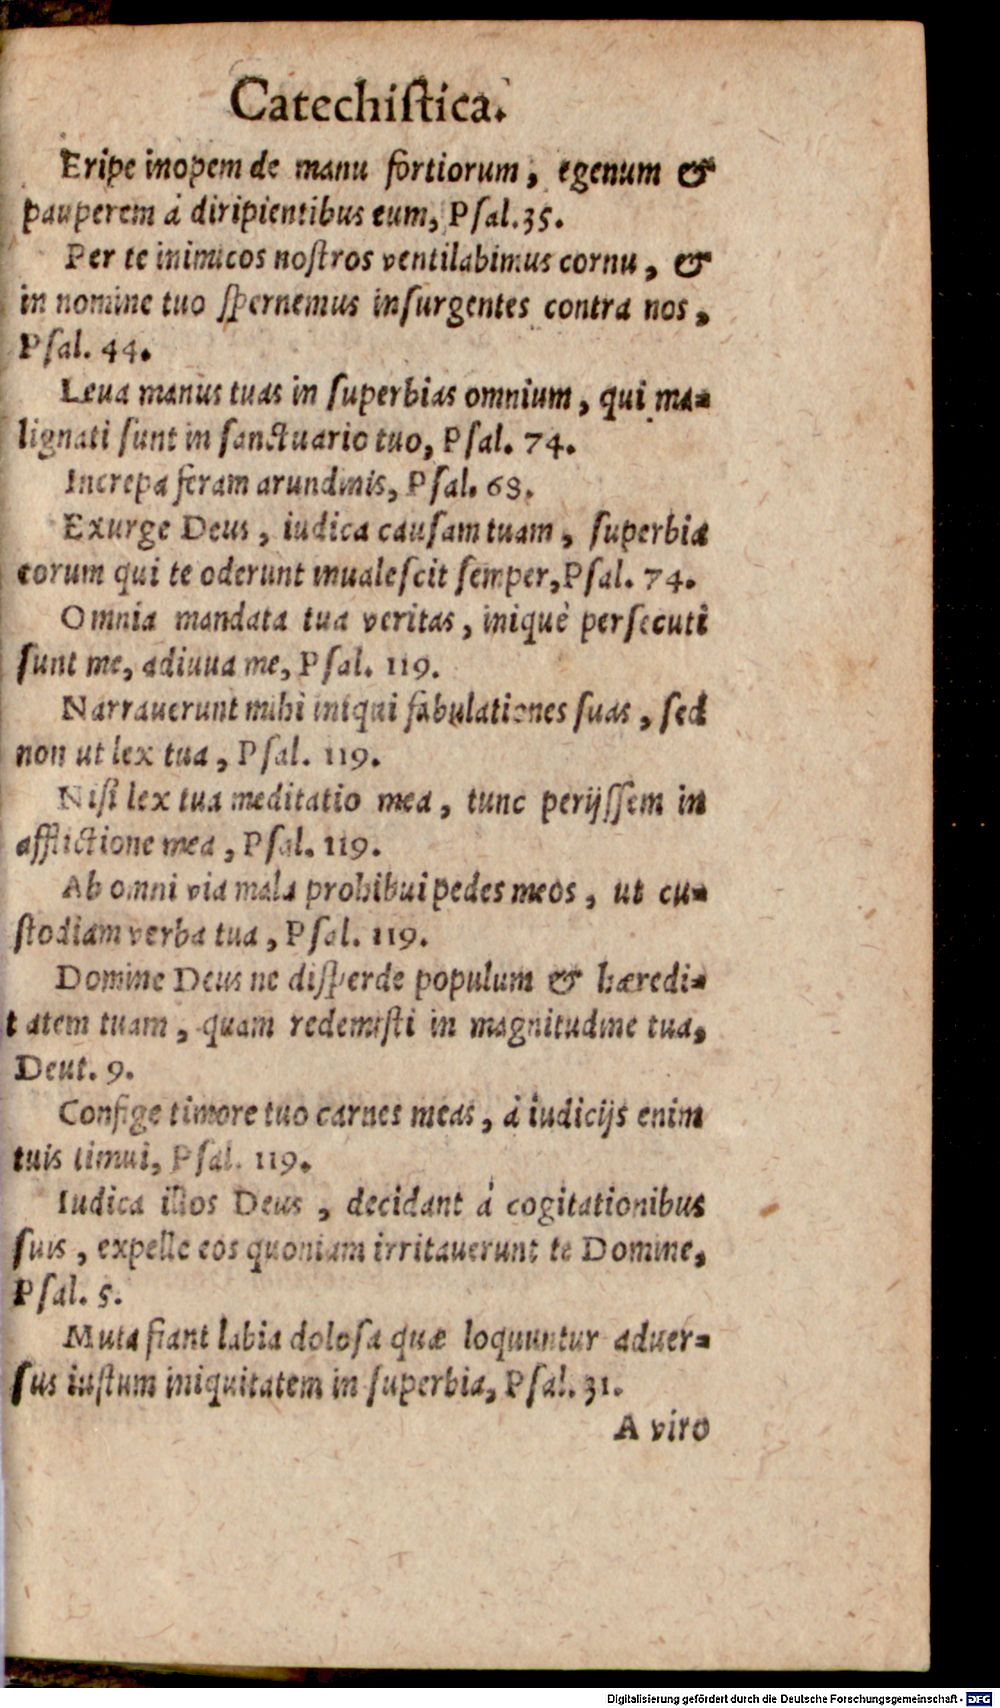 Catechiſtica.
Eripe inopem de manu fortiorum, egenum &
pauperem à diripientibus eum, Pſal. 35.
Per te inimicos noſtros ventilabimus cornu, &
in nomine tuo ſpernemus inſurgentes contra nos,
Pſal. 44.
Leua manus tuas in ſuperbias omnium, qui ma-
lignati ſunt in ſanctuario tuo, Pſal. 74.
Increpa feram arundinis, Pſal. 68.
Exurge Deus, iudica cauſam tuam, ſuperbia
eorum qui te oderunt inualeſcit ſemper, Pſal. 74.
Omnia mandata tua veritas, iniquè perſecuti
ſunt me, adiuua me, Pſal. 119.
Narrauerunt mihi iniqui fabulationes ſuas, ſed
non ut lex tua, Pſal. 119.
Niſi lex tua meditatio mea, tunc perijſſem in
afflictione mea, Pſal. 119.
Ab omni via mala prohibui pedes meos, ut cu-
ſtodiam verba tua, Pſal. 119.
Domine Deus ne diſperde populum & hæredi-
tatem tuam, quam redemiſti in magnitudine tua,
Deut. 9.
Confige timore tuo carnes meas, à iudicijs enim
tuis timui, Pſal. 119.
Iudica illos Deus, decidant à cogitationibus
ſuis, expelle eos quoniam irritauerunt te Domine,
Pſal. 5.
Muta fiant labia doloſa quæ loquuntur aduer-
ſus iuſtum iniquitatem in ſuperbia, Pſal. 31.
A viro
Digitalisierung gefördert durch die Deutsche Forschungsgemeinschaft - DFG